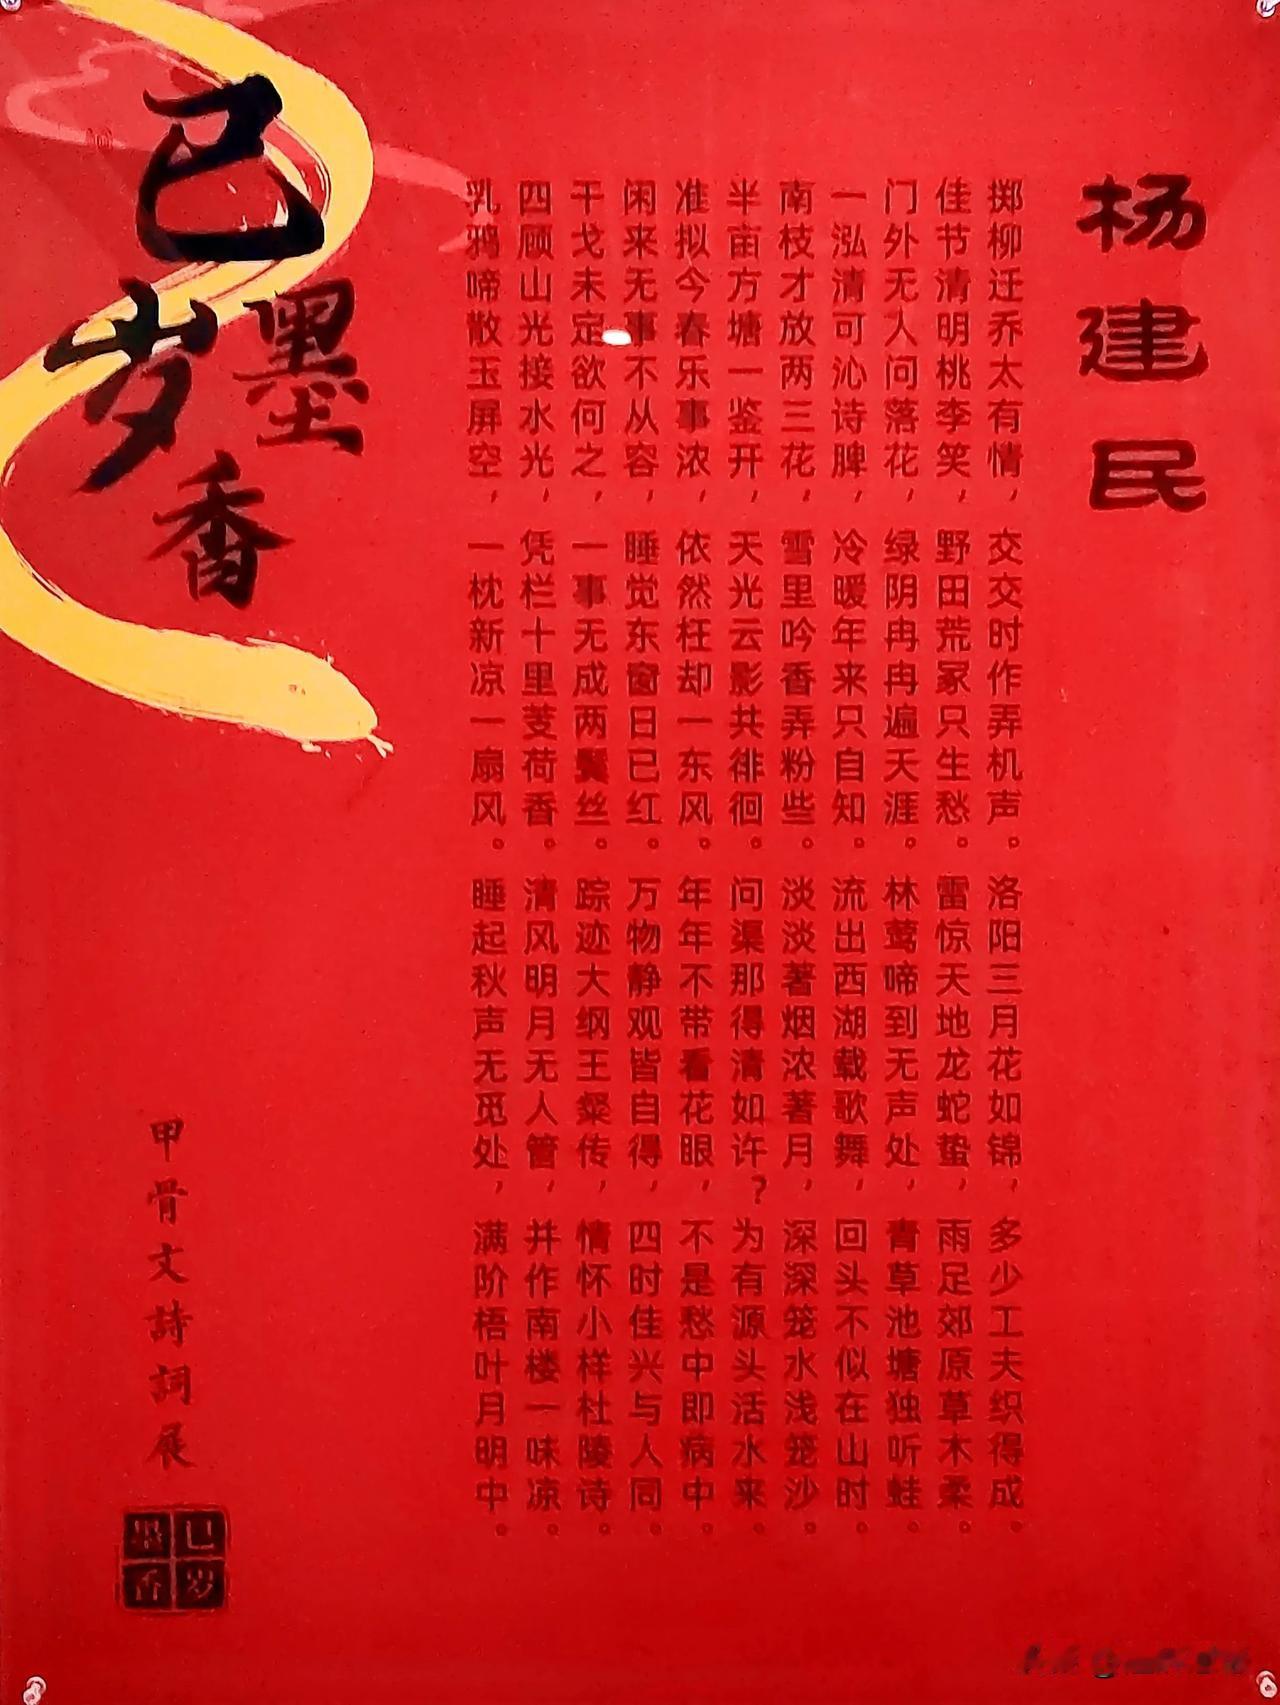 杨建民
掷柳迁乔太有情，交交时作弄机声。洛阳三月花如锦，多少工夫织得成。
佳节清明桃李笑，野田荒冢只生愁。雷惊天地龙蛇蛰，雨足郊原草木柔。
门外无人问落花，绿阴冉冉遍天涯。林莺啼到无声处，青草池塘独听蛙。
一泓清可沁诗脾，冷暖年来只自知。流出西湖载歌舞，回头不似在山时。
南枝才放两三花，雪里吟香弄粉些。淡淡著烟浓著月，深深笼水浅笼沙。
半亩方塘一鉴开，天光云影共徘徊。问渠那得清如许？为有源头活水来。
准拟今春乐事浓，依然枉却一东风。年年不带看花眼，不是愁中即病中。
闲来无事不从容，睡觉东窗日已红。万物静观皆自得，四时佳兴与人同。
干戈未定欲何之，一事无成两鬓丝。踪迹大纲王粲传，情怀小样杜陵诗。
四顾山光接水光，凭栏十里芰荷香。清风明月无人管，并作南楼一味凉。
乳鸦啼散玉屏空，一枕新凉一扇风。睡起秋声无觅处，满阶梧叶月明中。
巳岁
墨香
甲骨文詩詞展
巳岁
墨香